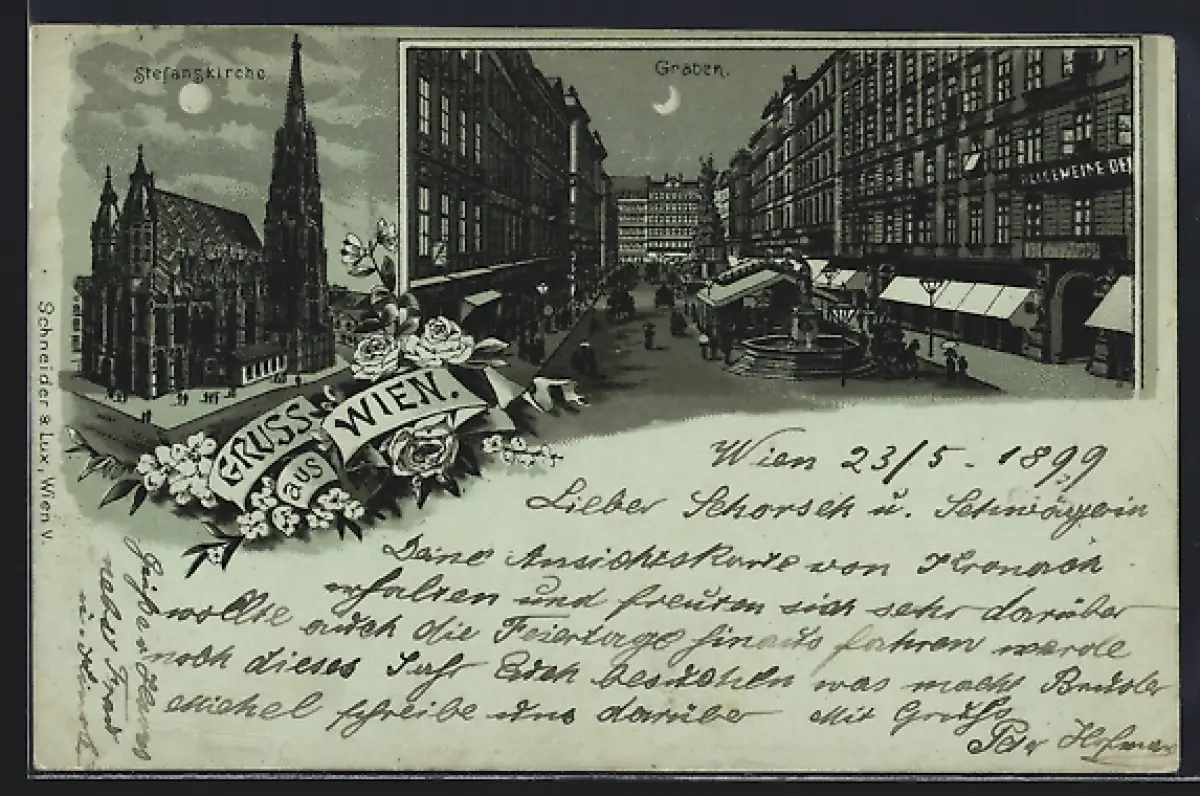 Stefanskirche
Graben.
ALLGEMEINE DE
GRUSS
aus
WIEN.
Schneider & Lux, Wien V.
Wien 23/5 - 1899
Lieber Schorsch u. Schwägerin
Deine Ansichtskarte von Kronach
erhalten und freuten sich sehr darüber
wollte auch die Feiertage hinaus fahren werde
noch dieses Jahr Euch besuchen was macht Bruder
Michel schreibe uns darüber Mit Gruß
Hofman
nebst Frau